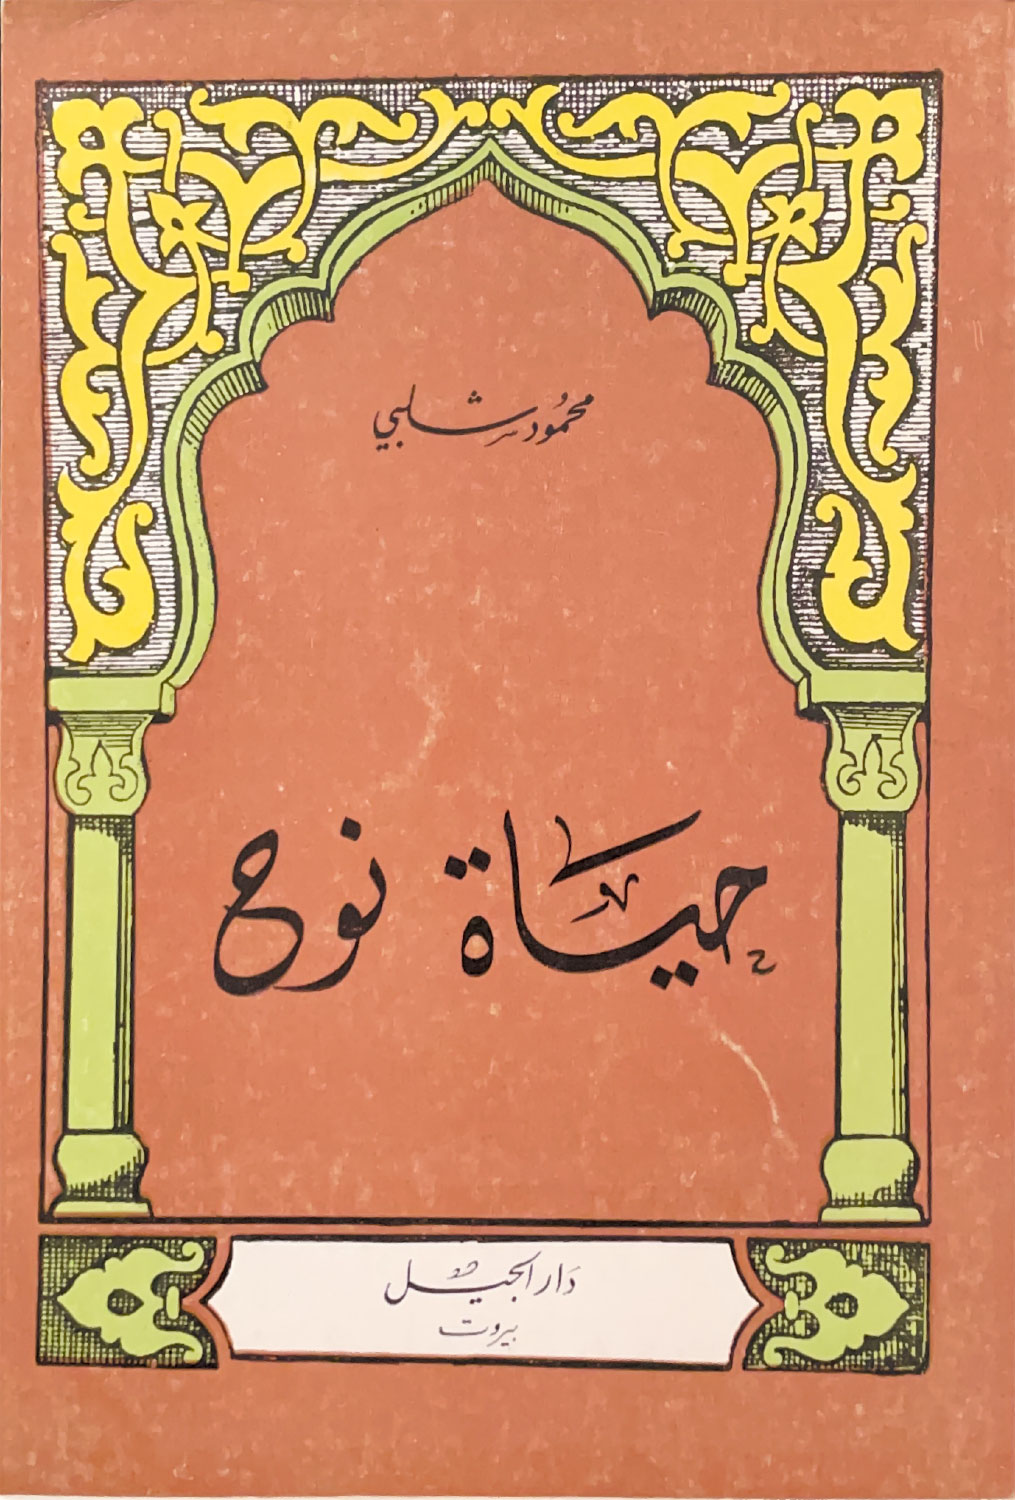 محمُود شلبي
حيَاة نوح
دَار الجيل
بيروت